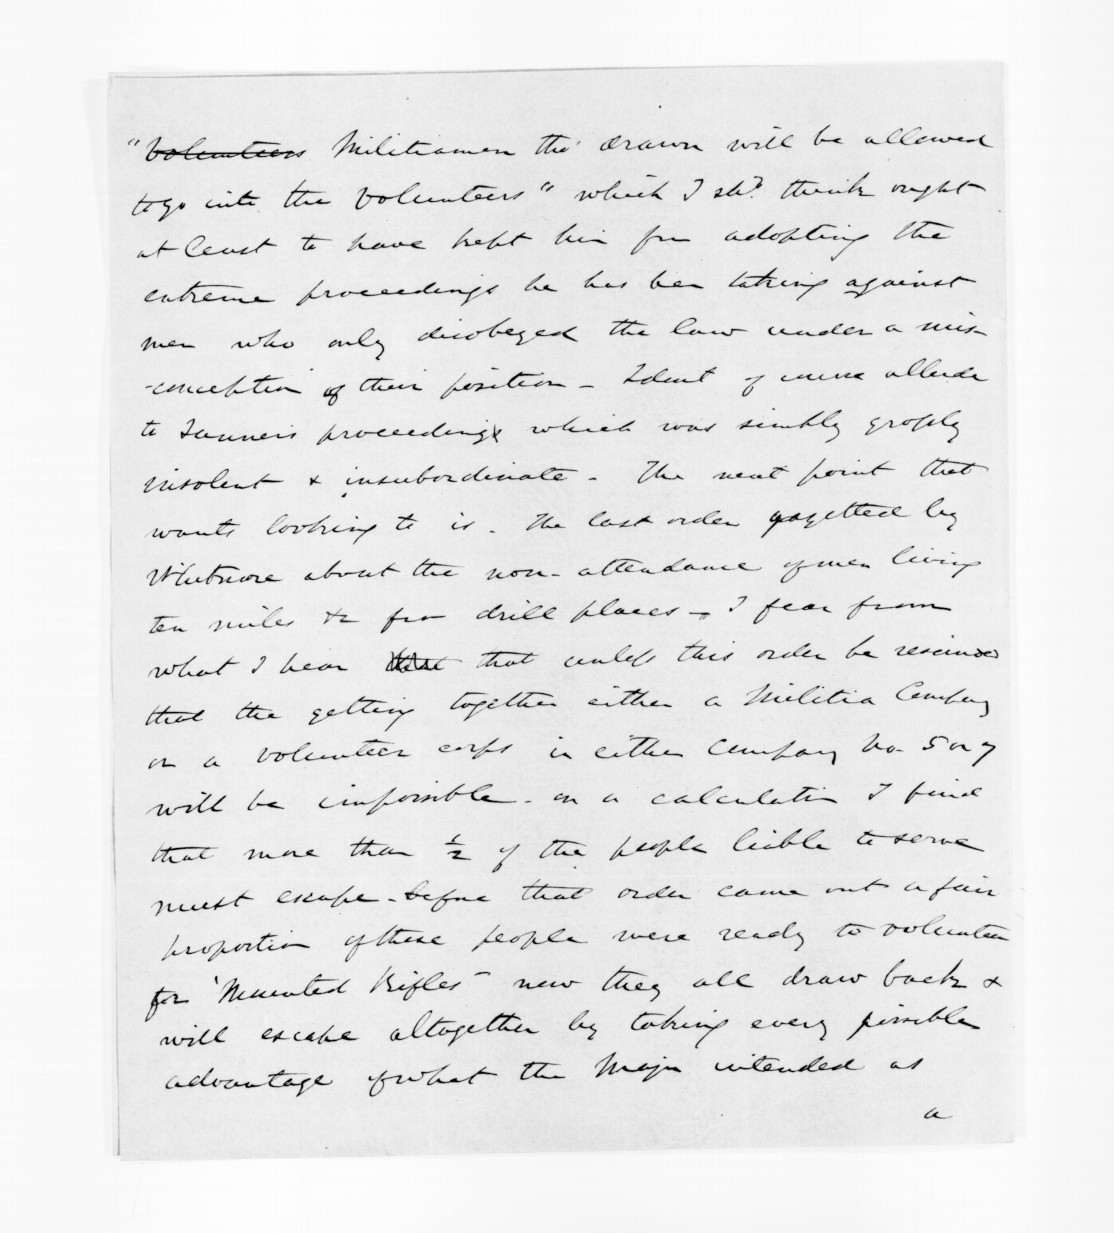 "Volunteers Militiamen tho' drawn will be allowed
to go into the Volunteers" which I shd. think ought
at least to have kept him from adopting the
extreme proceedings he has been taking against
men who only disobeyed the law under a mis
-conception of their position - I dont of course allude
to Tanner's proceedings which was simply grossly
insolent & insubordinate - The next point that
wants looking to is. The last order gazetted by
Whitmore about the non-attendance of men living
ten miles &c from drill places - I fear from
what I hear that unless this order be rescinded
that the getting together either a Militia Company
or a volunteer corps in either Company No. 5 or 7
will be impossible - on a calculation I find
that more than ½ of the people liable to serve
must escape - before that order came out a fair
proportion of these people were ready to volunteer
for 'Mounted Rifles' now they all draw back &
will escape altogether by taking every possible
advantage of what the Major intended as
a